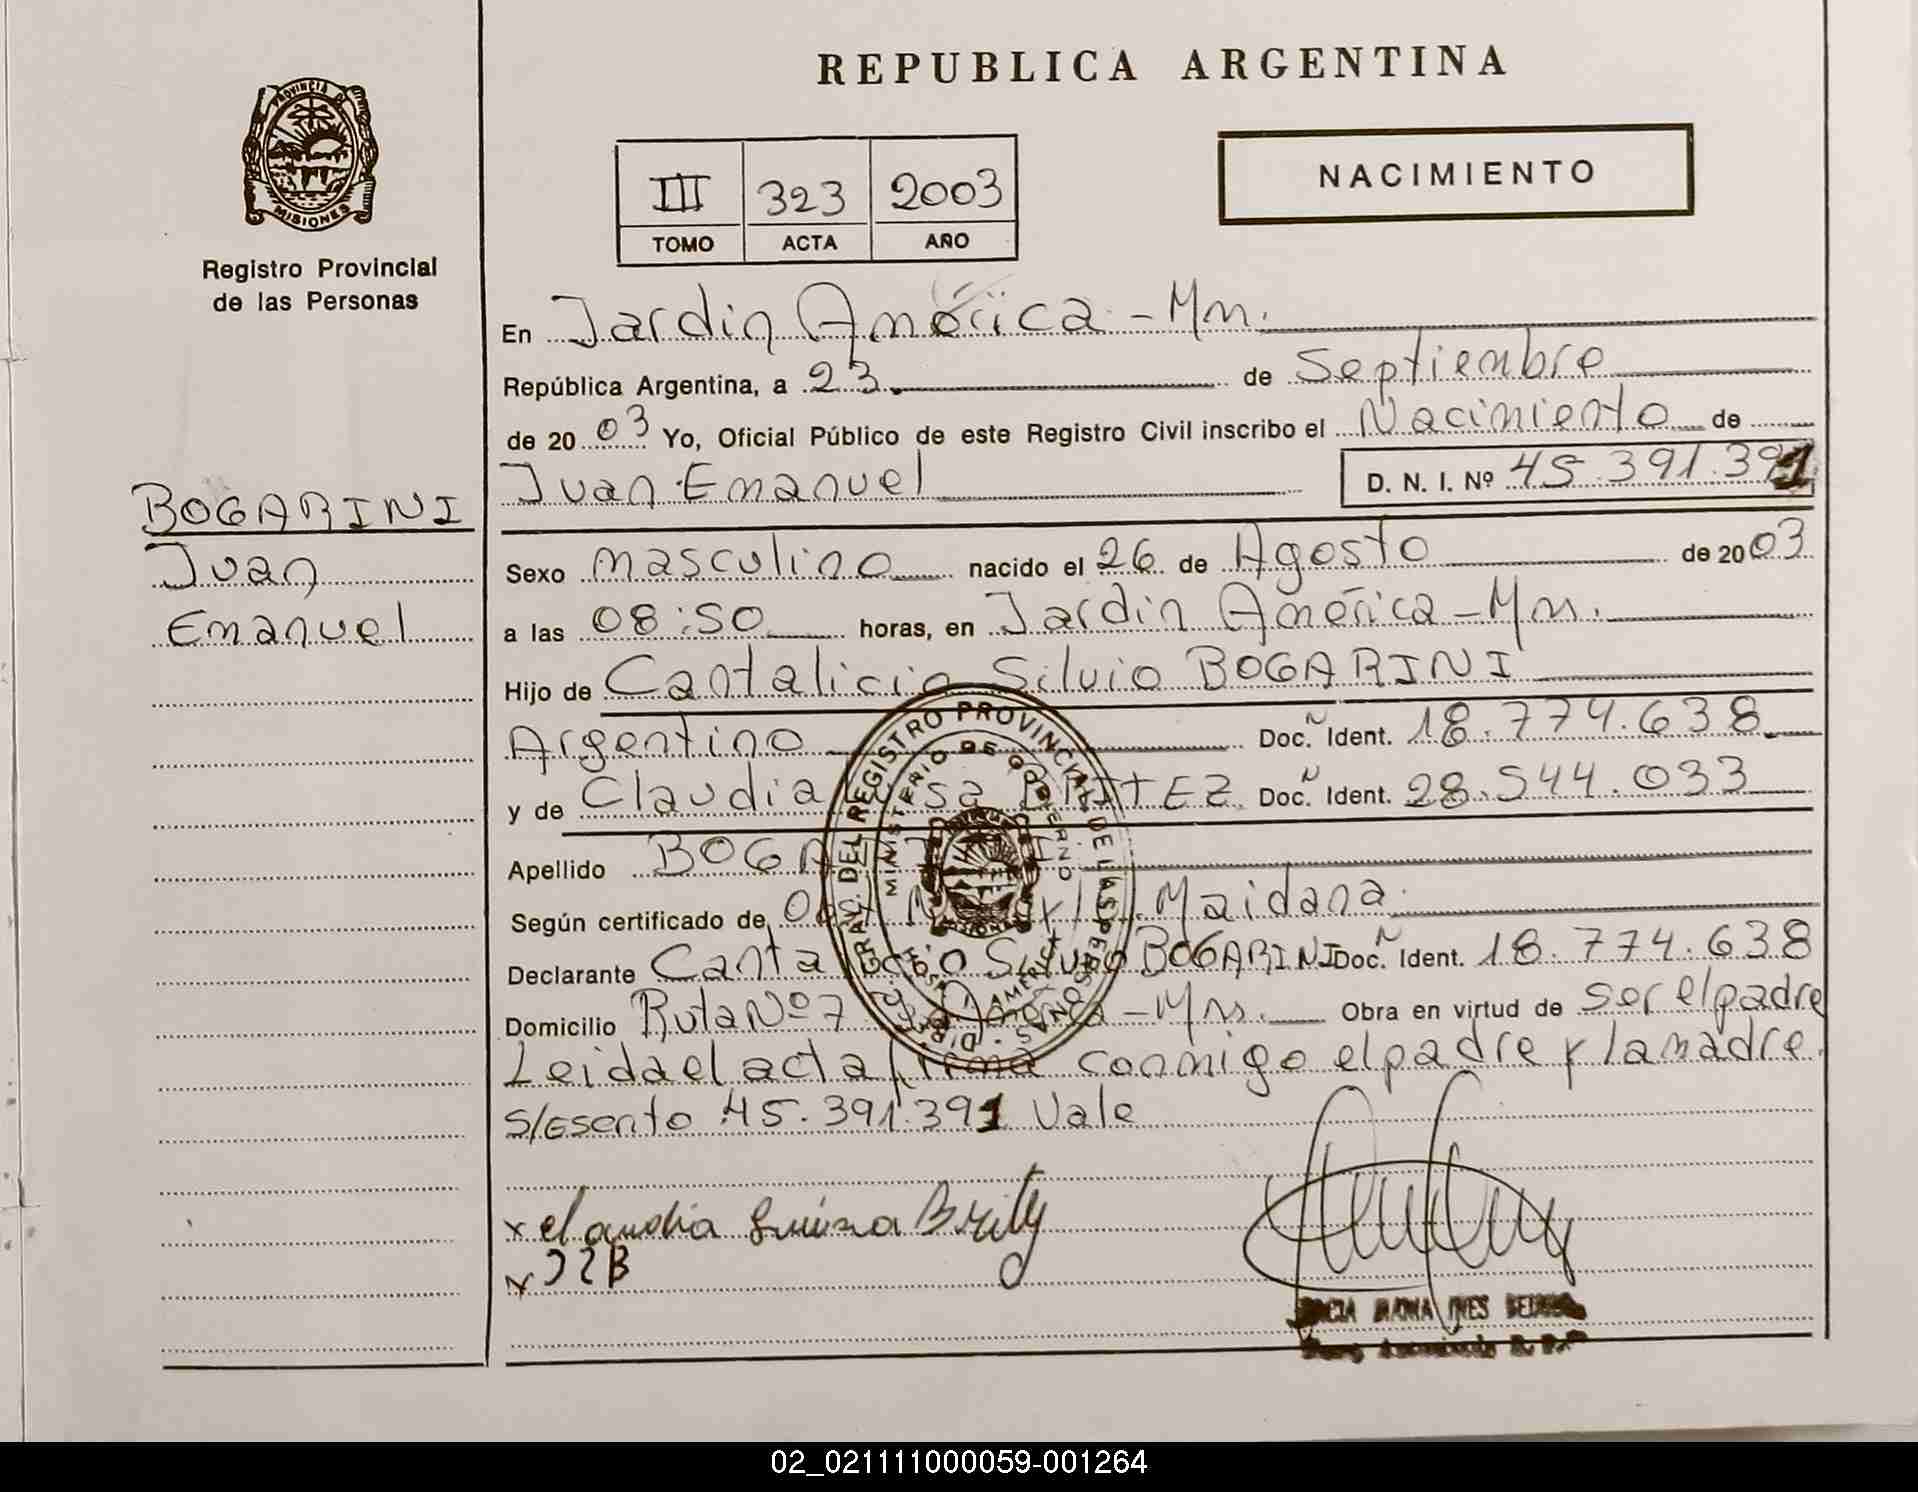 REPUBLICA ARGENTINA
PROVINCIA DE MISIONES
Registro Provincial
de las Personas
III 323 2003
TOMO ACTA AÑO
NACIMIENTO
En Jardin América - Mn.
República Argentina, a 23 de Septiembre
de 2003 Yo, Oficial Público de este Registro Civil inscribo el Nacimiento de
Juan Emanuel D. N. I. Nº 45.391.391
BOGARINI
Juan
Emanuel
Sexo masculino nacido el 26 de Agosto de 2003
a las 08:50 horas, en Jardin América - Mn.
Hijo de Cantalicio Silvio BOGARINI
Argentino Doc. Ident. 18.774.638
y de Claudia BRITEZ Doc. Ident. 28.544.033
Apellido BOGARINI
Según certificado de Maidana
Declarante Cantalicio Silvio BOGARINI Doc. Ident. 18.774.638
Domicilio Ruta Nº 7 J. América - Mns. Obra en virtud de ser el padre
Leida el acta firma conmigo el padre y la madre.
S/Esento 45.391.391 Vale
DIR. GRAL. DEL REGISTRO PROVINCIAL DE LAS PERSONAS
MINISTERIO DE GOBIERNO
x claudia Britez
x JSB
INES
02_021111000059-001264